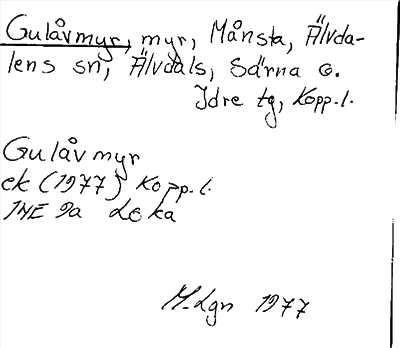 Gulåvmyr, myr, Månsta, Älvda-
lens sn, Älvdals, Särna o.
Idre tg, Kopp. l.
Gulåvmyr
ek (1977) Kopp. l.
14E 9a Loka
M. Lgn 1977